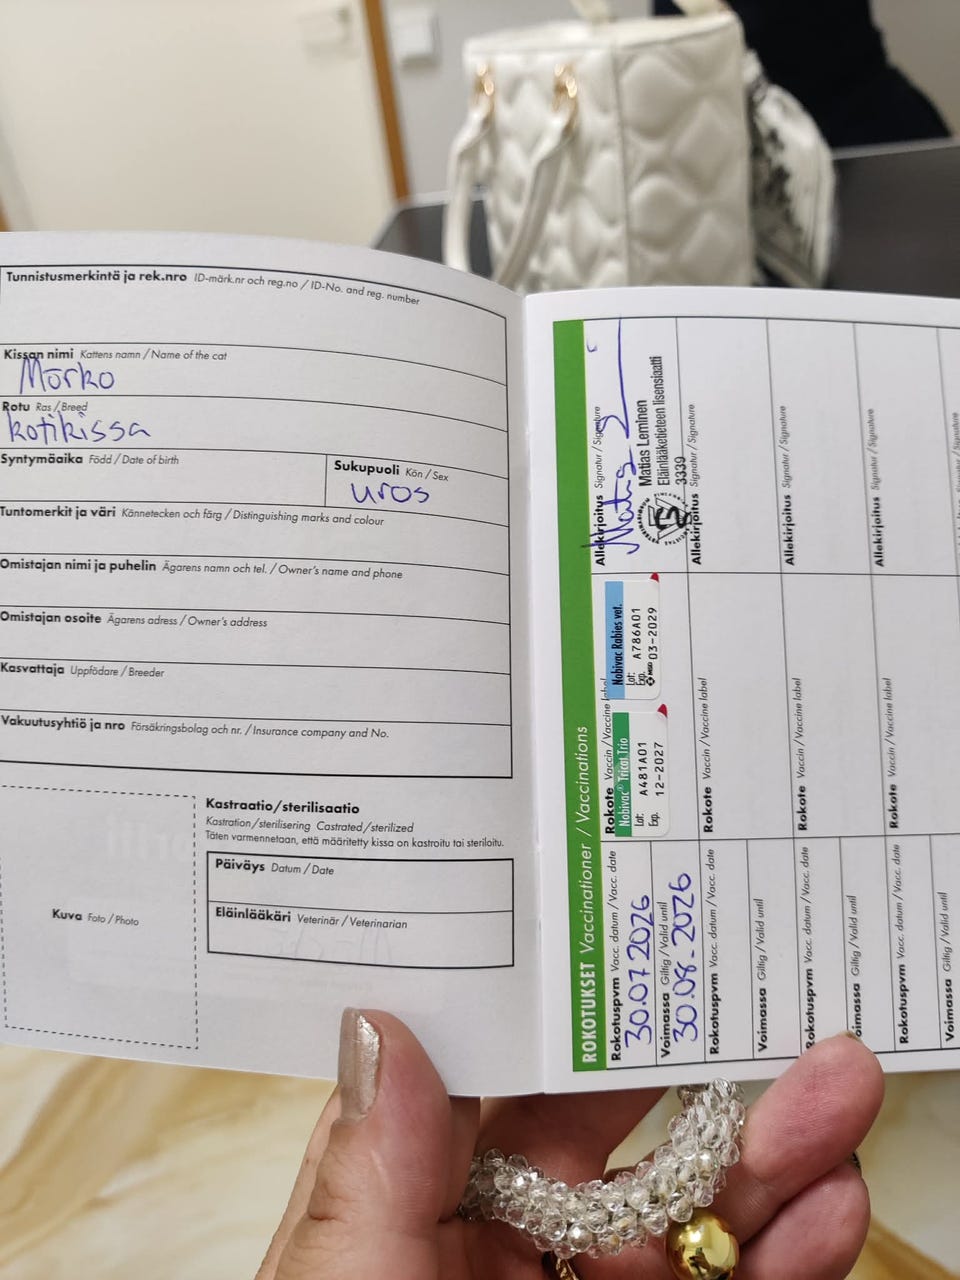 Tunnistusmerkintä ja rek.nro ID-märk.nr och reg.no / ID-No. and reg. number
Kissan nimi Kattens namn / Name of the cat
Mörkö
Rotu Ras / Breed
kotikissa
Syntymäaika Född / Date of birth
Sukupuoli Kön / Sex
uros
Tuntomerkit ja väri Kännetecken och färg / Distinguishing marks and colour
Omistajan nimi ja puhelin Ägarens namn och tel. / Owner's name and phone
Omistajan osoite Ägarens adress / Owner's address
Kasvattaja Uppfödare / Breeder
Vakuutusyhtiö ja nro Försäkringsbolag och nr. / Insurance company and No.
Kuva Foto / Photo
Kastraatio/sterilisaatio
Kastration/sterilisering Castrated/sterilized
Täten varmennetaan, että määritetty kissa on kastroitu tai steriloitu.
Päiväys Datum / Date
Eläinlääkäri Veterinär / Veterinarian
ROKOTUKSET Vaccinationer / Vaccinations
Rokotuspvm Vacc. datum / Vacc. date
30.07.2026
Voimassa Giltig / Valid until
30.08.2026
Rokote Vaccin / Vaccine label
Nobivac® Tricat Trio
Lot: A481A01
Exp. 12-2027
Nobivac Rabies vet.
Lot: A786A01
Exp. 03-2029
MSD
Allekirjoitus Signatur / Signature
Matias Leminen
Eläinlääketieteen lisensiaatti
3339
Rokotuspvm Vacc. datum / Vacc. date
Voimassa Giltig / Valid until
Rokote Vaccin / Vaccine label
Allekirjoitus Signatur / Signature
Rokotuspvm Vacc. datum / Vacc. date
Voimassa Giltig / Valid until
Rokote Vaccin / Vaccine label
Allekirjoitus Signatur / Signature
Rokotuspvm Vacc. datum / Vacc. date
Voimassa Giltig / Valid until
Rokote Vaccin / Vaccine label
Allekirjoitus Signatur / Signature